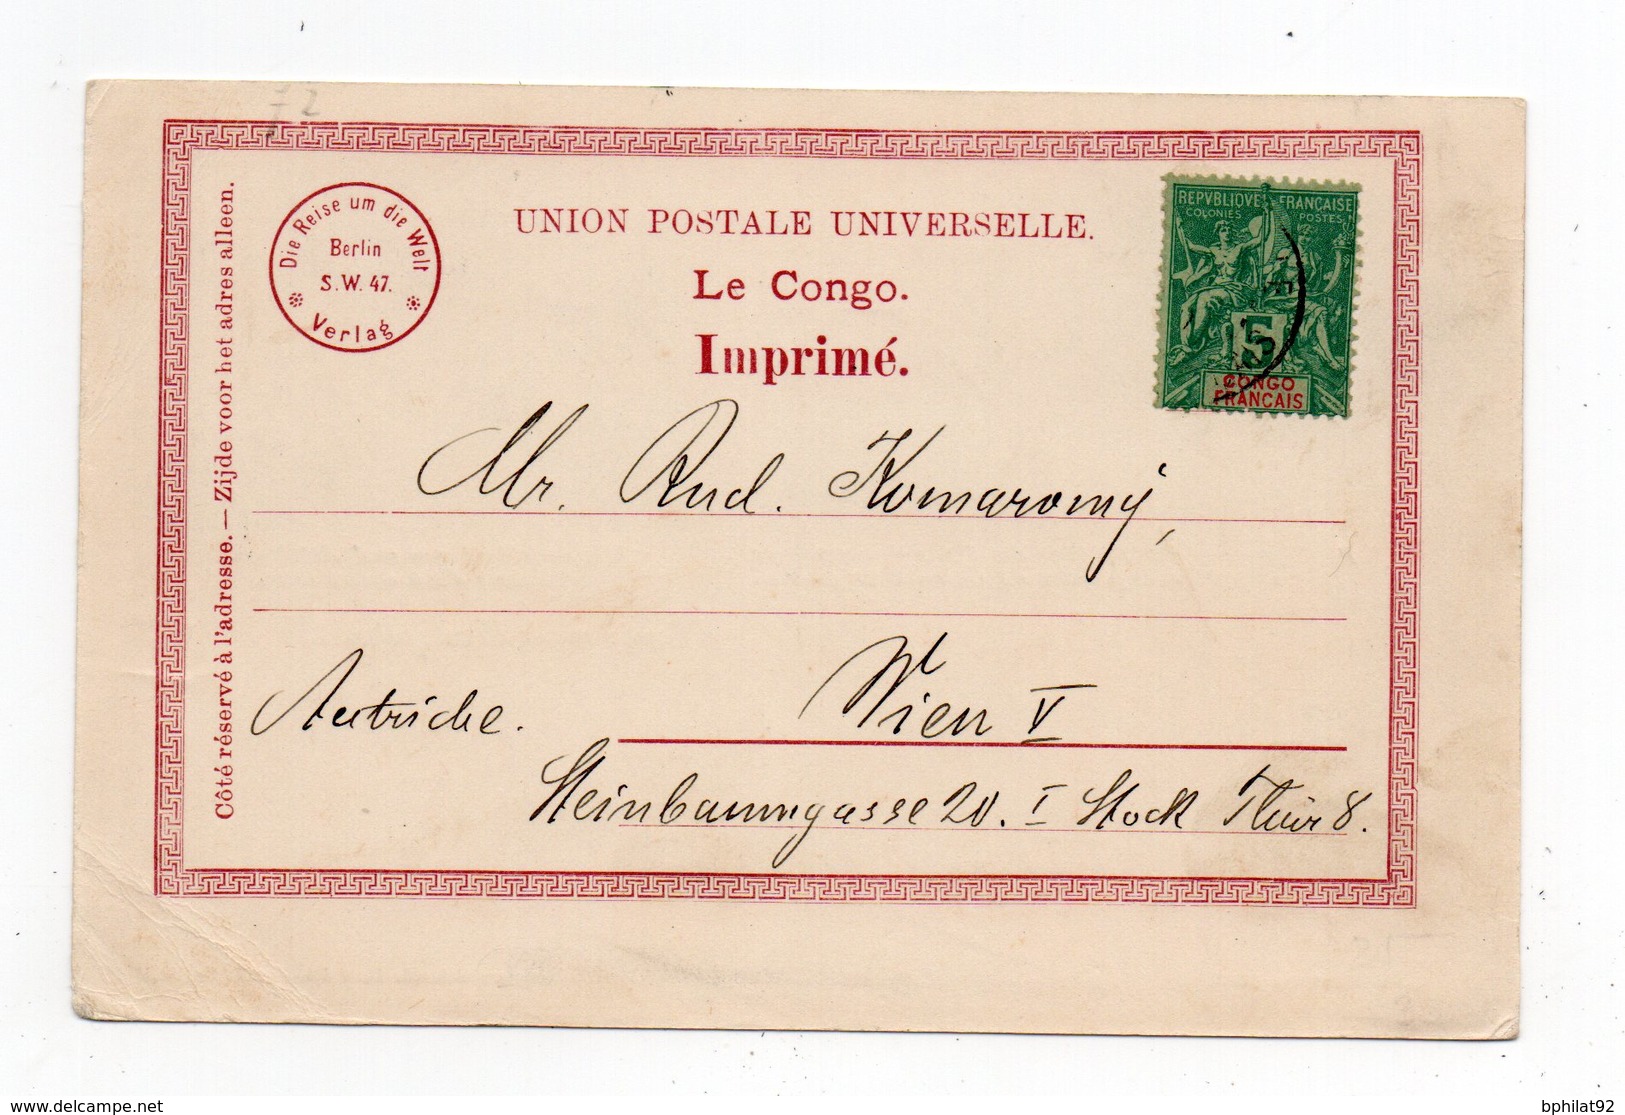 Die Reise um die Welt
Berlin
S. W. 47.
Verlag
UNION POSTALE UNIVERSELLE.
Le Congo.
Imprimé.
REPVBLIQVE FRANÇAISE
COLONIES POSTES
5
CONGO
FRANÇAIS
Côté réservé à l'adresse. — Zijde voor het adres alleen.
Mr. Rud. Komaromÿ,
Wien V
Autriche.
Steinbaumgasse 20. I Stock Thür 8.
delcampe.net
bphilat92